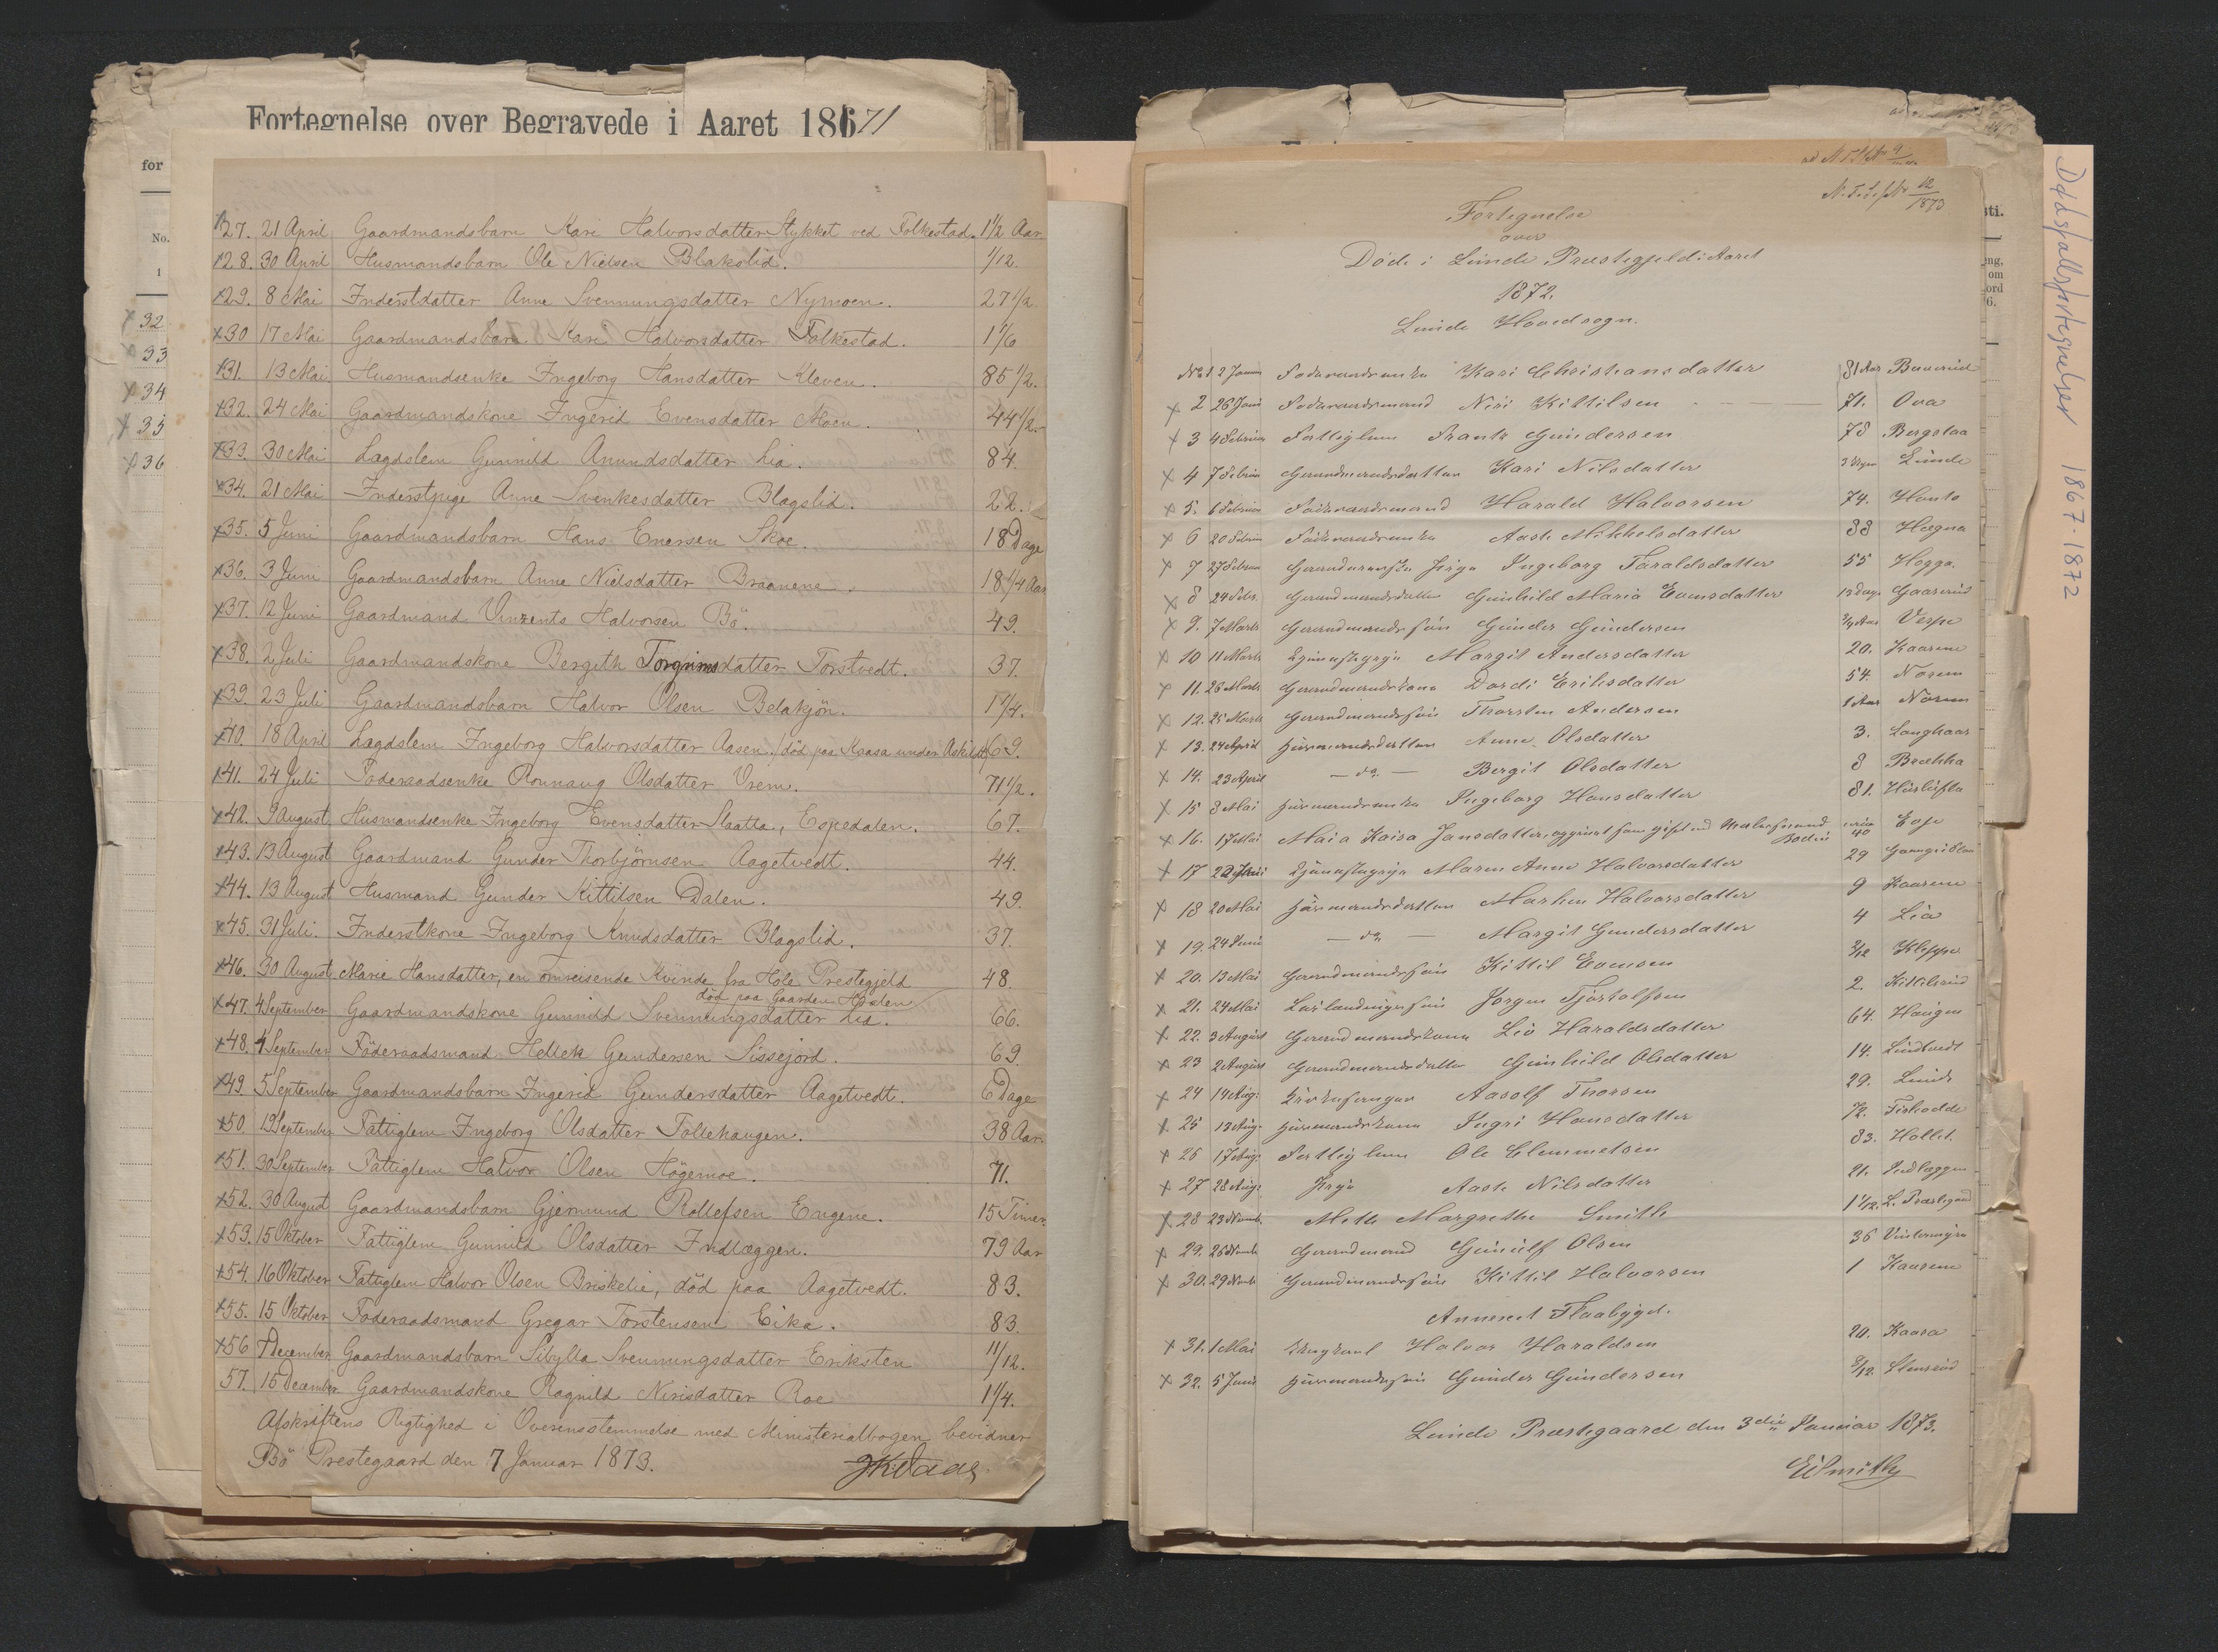 Fortegnelse over Begravede i Aaret 1871
for
No.
1
x 32
x 33
x 34
x 35
x 36
x27. 21 April Gaardmandsbarn Kari Halvorsdatter Stykket ved Folkestad. 1 1/2 Aar
x28. 30 April Husmandsbarn Ole Nielsen Blakslid. 1/12.
x29. 8 Mai Inderstdatter Anne Svennungsdatter Nymoen. 27 1/2.
x30 17 Mai Gaardmandsbarn Kari Halvorsdatter Folkestad. 1 1/6
x31. 13 Mai Husmandsenke Ingeborg Hansdatter Kleven. 85 1/2.
x32. 24 Mai Gaardmandskone Ingerid Evensdatter Moen. 44 1/2.
x33. 30 Mai Lægdslem Gunnild Anundsdatter Lia. 84.
x34. 21 Mai Inderstpige Anne Svenkesdatter Blagslid. 22.
x35. 5 Juni Gaardmandsbarn Hans Enersen Skoe. 18 Dage
x36. 3 Juni Gaardmandsbarn Anne Nielsdatter Braanene. 18 1/4 Aar
x37. 12 Juni Gaardmand Vinzents Halvorsen Bö. 49.
x38. 2 Juli Gaardmandskone Bergith Torgrimsdatter Torstvedt. 37.
x39. 23 Juli Gaardmandsbarn Halvor Olsen Belakjön. 1 1/4.
x40. 18 April Lægdslem Ingeborg Halvorsdatter Aasen, død paa Kaasa under Askildt 69.
x41. 24 Juli Föderaadsenke Rounaug Olsdatter Vrem. 71 1/2.
x42. 9 August Husmandsenke Ingeborg Evensdatter Slaatta, Espedalen. 67.
x43. 13 August Gaardmand Gunder Thorbjörnsen Aagetvedt. 44.
x44. 13 August Husmand Gunder Kittilsen Dalen. 49.
x45. 31 Juli. Inderstkone Ingeborg Knudsdatter Blagslid. 37.
x46. 30 August Marie Hansdatter, en omreisende Kvinde fra Hole Prestegjeld 48.
død paa Gaarden
x47. 4 September Gaardmandskone Gunnild Svennungsdatter Lia. 66.
x48. 4 September Föderaadsmand Hellek Gundersen Sissejord. 69
x49. 5 September Gaardmandsbarn Ingerid Gundersdatter Aagetvedt. 6 Dage
x50. 19 September Fattiglem Ingeborg Olsdatter Tollehaugen. 38 Aar
x51. 30 September Fattiglem Halvor Olsen Högemoe. 71.
x52. 30 August Gaardmandsbarn Gjermund Rollefsen Engene. 15 Timer
x53. 15 Oktober Fattiglem Gunnild Olsdatter Indlæggen. 79 Aar
x54. 16 Oktober Fattiglem Halvor Olsen Briskelie, död paa Aagetvedt. 83.
x55. 15 Oktober Föderaadsmand Gregar Torstensen Eika. 83.
x56 7 December Gaardmandsbarn Sibylla Svennungsdatter Eriksten 11/12.
57. 15 December Gaardmandskone Ragnild Nirisdatter Roe 1 1/4.
Afskriftens Rigtighed i Overensstemmelse med Ministerialbogen bevidner
Bö Prestegaard den 7 Januar 1873.
N. T. S. f. No 12/1873
Fortegnelse
over
Døde i Lunde Præstegjeld i Aaret
1872.
Lunde Hovedsogn.
No 1 2 Januar Føderaadsenke Kari Christiansdatter 81 Aar
x 2 26 Føderaadsmand Niri Kittilsen 71. Ova
x 3 4 Februar Fattiglem Frants Gundersen 78 Bergslaa
x 4 7 Februar Gaardmandsdatter Kari Nilsdatter 3 Uger Lunde
x 5. 6 Februar Føderaadsmand Harald Halvorsen 74. Honto
x 6 20 Februar Føderaadsenke Aaste Mikkelsdatter 88 Hægna
x 7 27 Februar Pige Ingeborg Taraldsdatter 55 Hogga.
x 8 24 Febr. Gaardmandsdatter Gunhild Maria Evensdatter 13 Dage
x 9. 7 Marts Gaardmandssøn Gunder Gundersen Vespe
x 10 11 Marts Tjenestepige Margit Andersdatter 20. Kaasene
x 11. 26 Marts Gaardmandskone Dordi Eriksdatter 54. Norum
x 12. 25 Marts Gaardmandssøn Thorsten Andersen 1 Aar Norum
x 13. 24 April Husmandsdatter Anne Olsdatter 3. Langkaas
x 14. 23 April — do — Bergit Olsdatter 8 Brækka
x 15 8 Mai Husmandsenke Ingeborg Hansdatter 81.
x 16. 17 Mai Maia Kaisa Jansdatter, opgivet som gift med 40 Eoje
Bodin
x 17 Tjenestepige Maren Anne Halvorsdatter 29
x 18 20 Mai Husmandsdatter Marken Halvorsdatter 9 Kaasene
x 19. 24 Juni — do — Margit Gundersdatter 4 Lia
x 20. 13 Mai Gaardmandssøn Kittil Evensen 2/12
x 21. 24 Mai Jørgen Tjøstolfsen 2. Kittilsrud
x 22. 3 August Gaardmandskone Liv Haraldsdatter 64. Haugen
x 23 2 August Gaardmandsdatter Gunhild Olsdatter 14. Lindtvedt
x 24 14 Aug. Kirkesanger Aasolf Thorsen 29. Lunde
x 25 13 Aug. Husmandskone Ingri Hansdatter 72. Fiskodde
x 26 17 Aug. Fattiglem Ole Clemmetsen 83. Hollet.
x 27 28 Aug. Pige Aaste Nilsdatter 21. Indlæggen
x 28 23 Mette Margrethe Smith 1 1/12. L. Præstegaard
x 29. 26 Gaardmand Gunulf Olsen 36
x 30. 29 Gaardmandssøn Kittil Halvorsen 1 Kaasene
Annext Flaabygd.
x 31. 1 Mai Halvor Haraldsen 20. Kaasa
x 32. 5 Juni Husmandssøn Gunder Gundersen Stensrud
Lunde Præstegaard den 3die Januar 1873.
ESmith
Dødsfallsfortegnelser 1867-1872